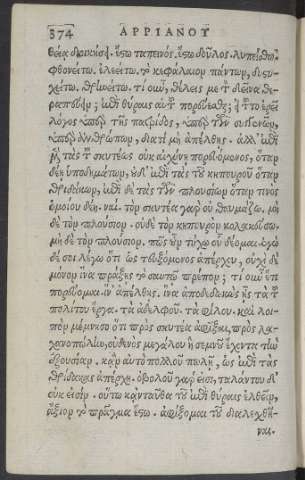 374 ΑΡΡΙΑΝΟΥ
θείᾳ διοικήσει. ἔστω ταπεινός. ἔστω δοῦλος. λυπείσθω.
φθονείτω. ἐλεείτω. τὸ κεφάλαιον πάντων, δυστυ-
χείτω. θρηνείτω. τί οὖν, θέλεις με τὸν δεῖνα θε-
ραπεύειν; ἐπὶ θύρας αὐτοῦ πορεύεσθαι; εἰ τοῦτο ἐρεῖ
λόγος ὑπὲρ τῆς πατρίδος, ὑπὲρ τῶν συγγενῶν,
ὑπὲρ ἀνθρώπων, διατί μὴ ἀπέλθῃς. ἀλλ' ἐπὶ
μὲν τὰς τοῦ σκυτέως οὐκ αἰσχύνῃ πορευόμενος, ὅταν
δέῃ ὑποδημάτων, οὐδ' ἐπὶ τὰς τοῦ κηπουροῦ ὅταν
θριδάκων, ἐπὶ δὲ τὰς τῶν πλουσίων ὅταν τινὸς
ὁμοίου δέῃ. ναί. τὸν σκυτέα γὰρ οὐ θαυμάζω. μη
δὲ τὸν πλούσιον. οὐδὲ τὸν κηπουρὸν κολακεύσω.
μὴ δὲ τὸν πλούσιον. πῶς οὖν τύχω οὗ δέομαι. ἐγὼ
δέ σοι λέγω ὅτι ὡς τευξόμενος ἀπέρχου, οὐχὶ δὲ
μόνον ἵνα πράξῃς τὸ σαυτῷ πρέπον; τί οὖν ἔτι
πορεύομαι. ἵν' ἀπέλθῃς. ἵνα ἀποδεδωκὼς ᾖς τὰ τοῦ
πολίτου ἔργα. τὰ ἀδελφοῦ. τὰ φίλου. καὶ λοι-
πὸν μέμνησο ὅτι πρὸς σκυτέα ἀφῖξαι, πρὸς λα-
χανοπώλην, οὐδενὸς μεγάλου ἢ σεμνοῦ ἔχοντα τὴν
ἐξουσίαν. κἂν αὐτὸ πολλοῦ πωλῇ, ὡς ἐπὶ τὰς
θρίδακας ἀπέρχῃ. ὀβολοῦ γάρ εἰσι, ταλάντου δ'
οὐκ εἰσίν. οὕτω κἀνταῦθα τοῦ ἐπὶ θύρας ἐλθεῖν,
ἄξιον τὸ πρᾶγμα ἔστω. ἀφίξομαι τοῦ διαλεχθῆ-
ναι.